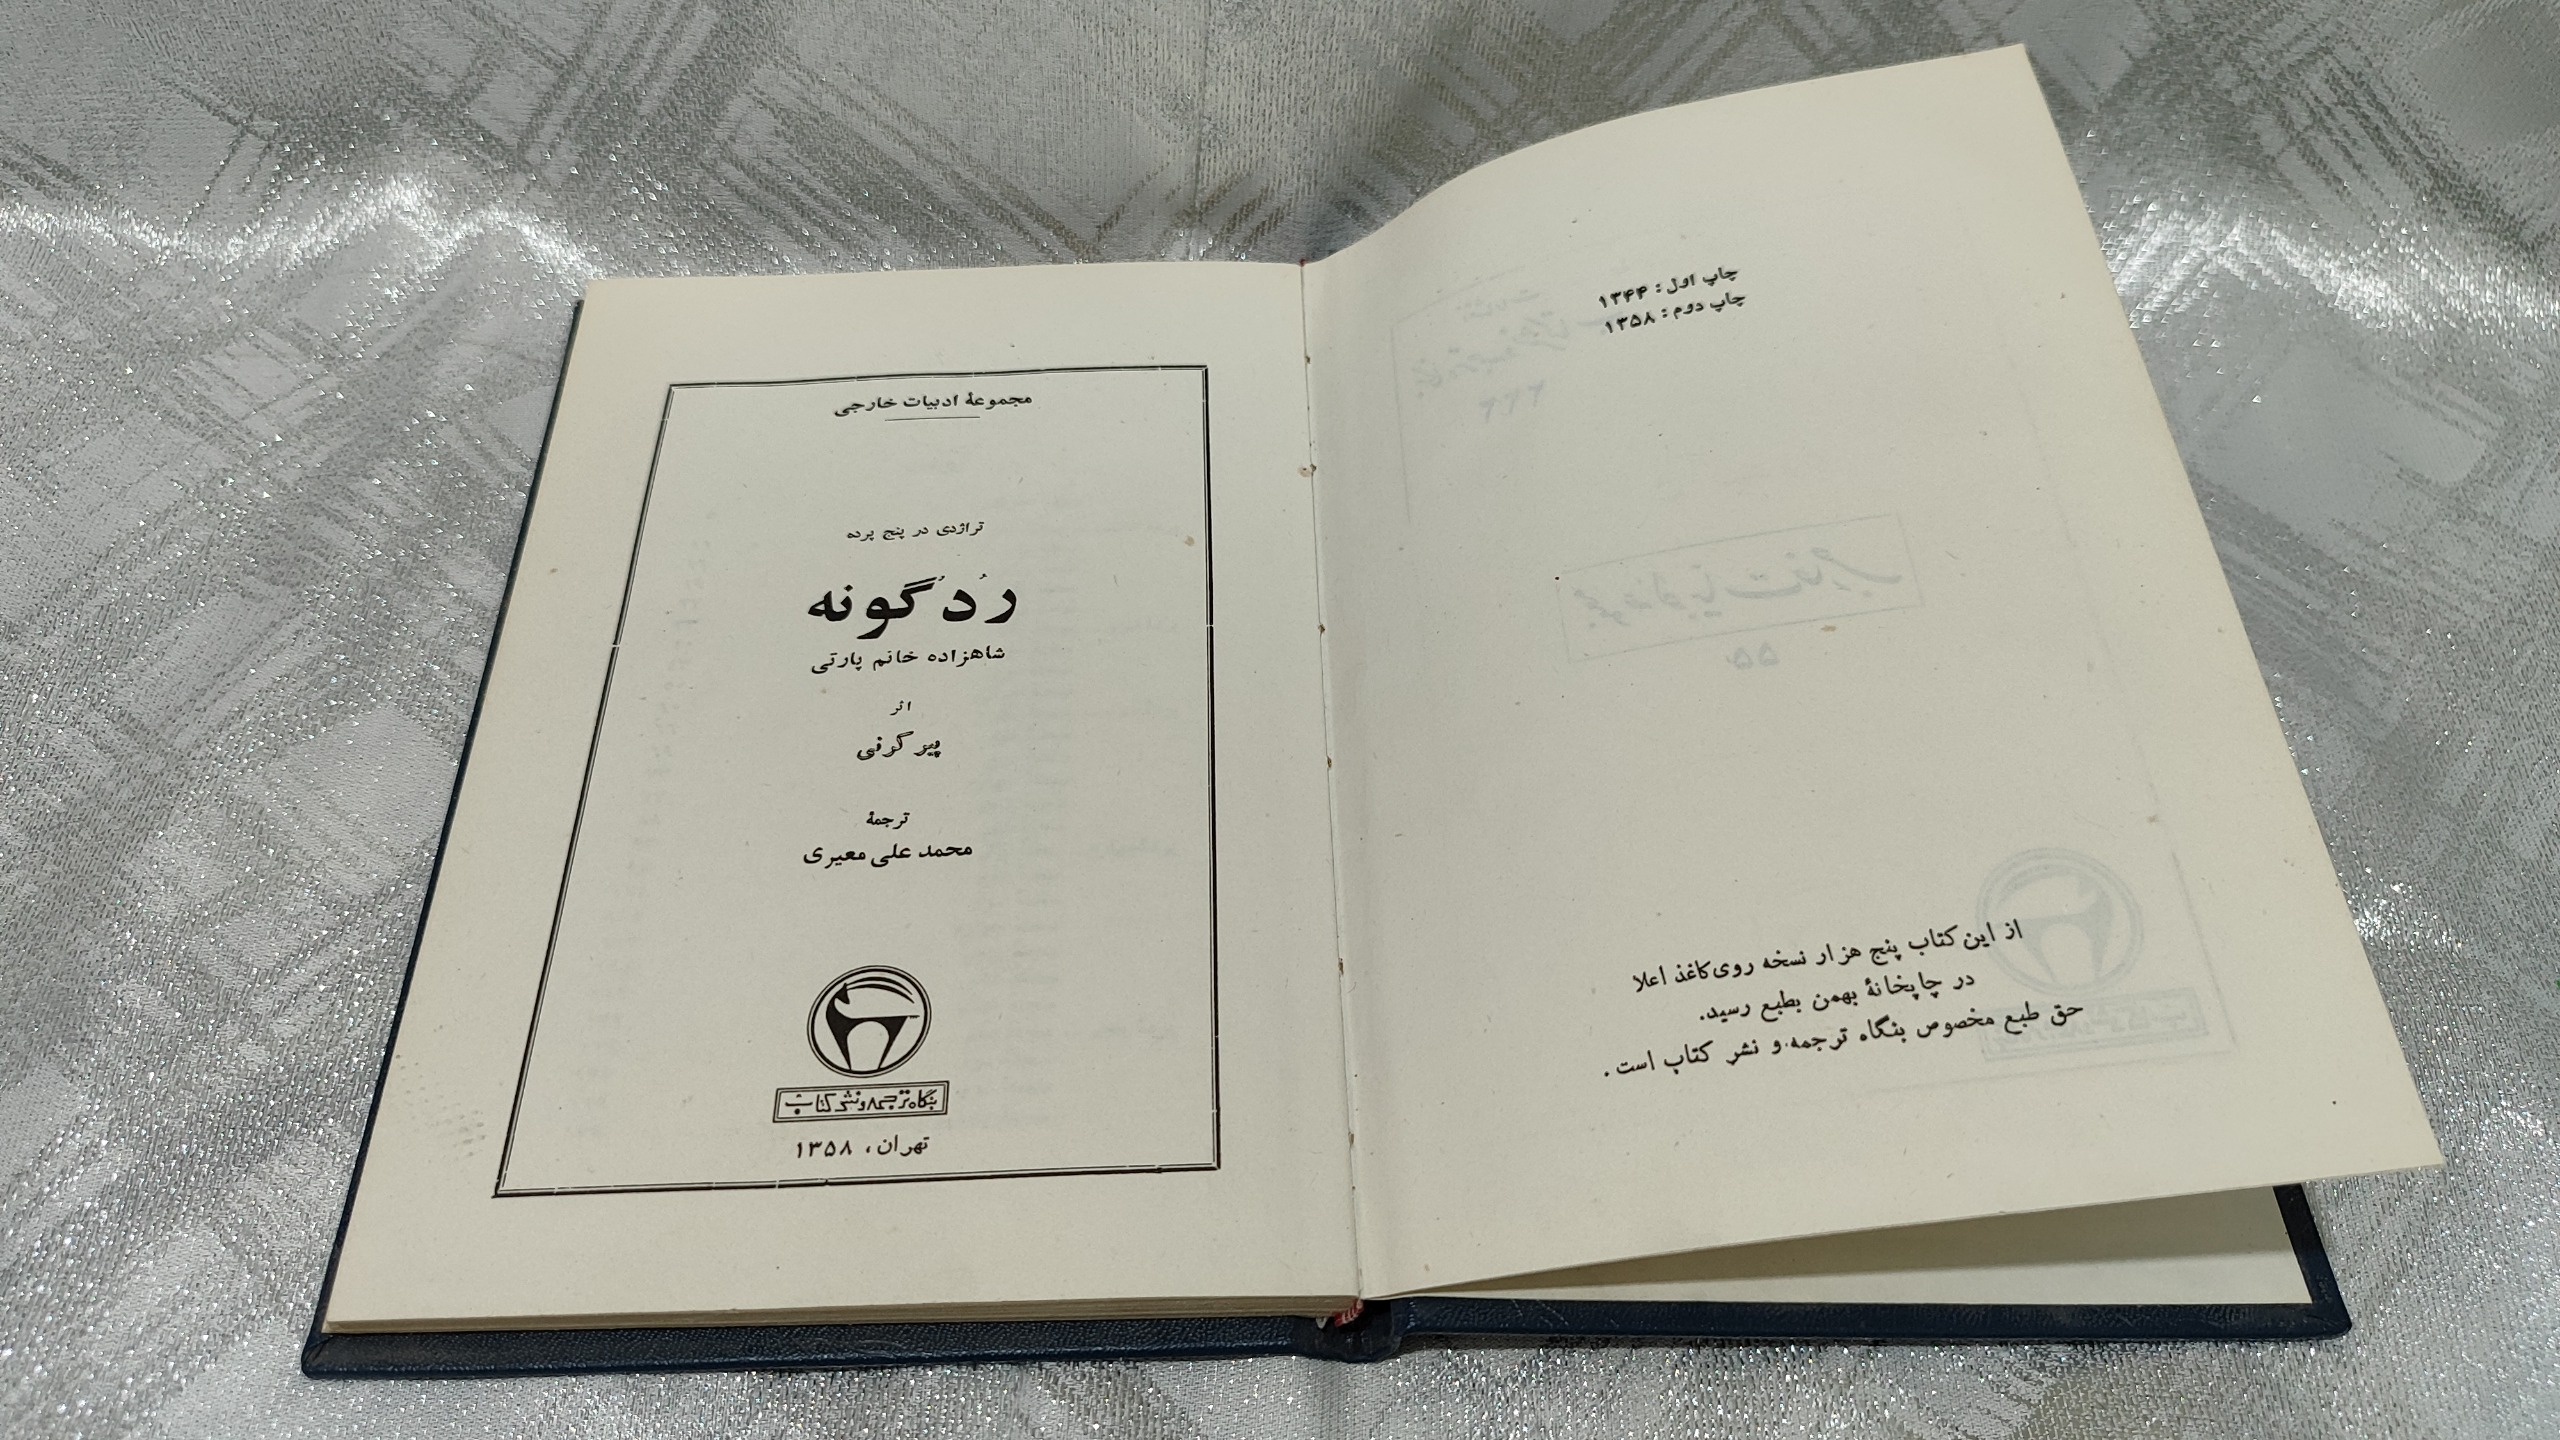 چاپ اول : ۱۳۴۴
چاپ دوم : ۱۳۵۸
از این کتاب پنج هزار نسخه روی کاغذ اعلا
در چاپخانهٔ بهمن بطبع رسید.
حق طبع مخصوص بنگاه ترجمه و نشر کتاب است.
مجموعهٔ ادبیات خارجی
تراژدی در پنج پرده
رُدُگونه
شاهزاده خانم پارتی
اثر
پیر کرنی
ترجمهٔ
محمد علی معیری
بنگاه ترجمه و نشر کتاب
تهران، ۱۳۵۸